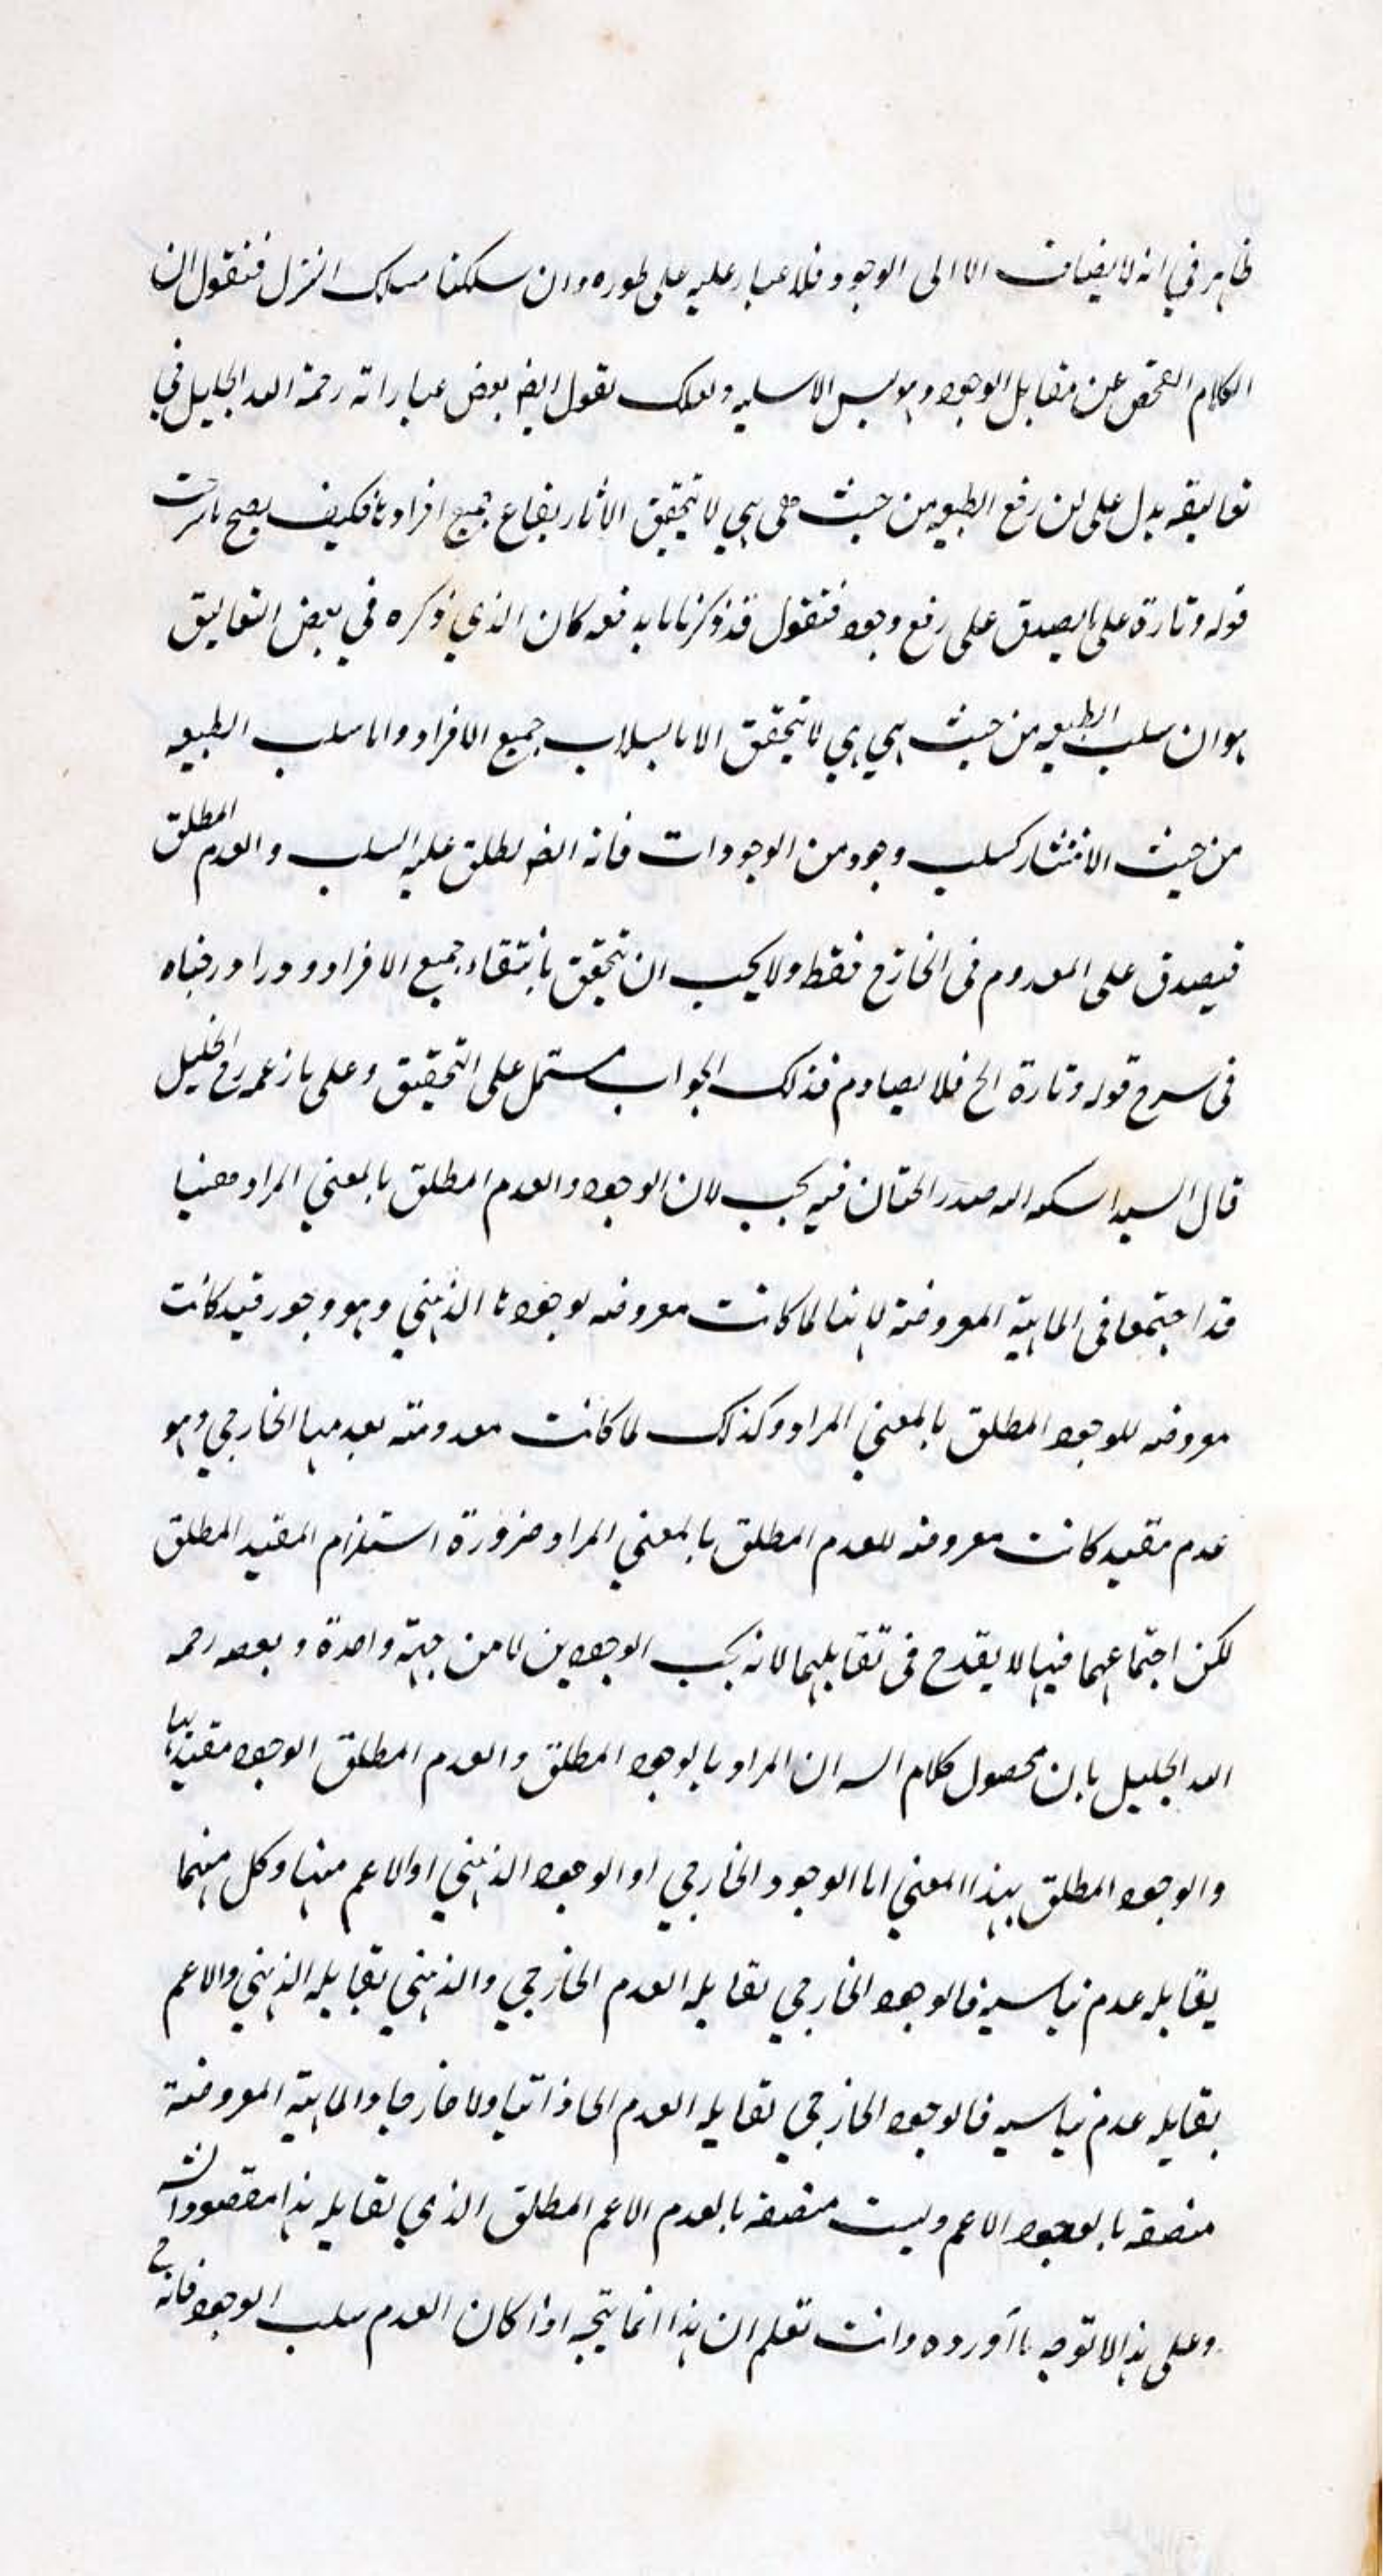 ظاهر في انه لا يضاف الا الى الوجود فلا غبار عليه على طوره وان سلكنا مسلك التنزل فنقول ان
الكلام الفحص عن مقابل الوجود وهو ليس الا سلبه ولعلك تقول ايضا بعض عباراته رحمة الله الجليل في
تعاليقه يدل على ان رفع الطبيعه من حيث هي هي لا تتحقق الا بارتفاع جميع افرادها فكيف يصح ما شرحت
قوله وتارة على ما يصدق على رفع وجود فنقول قد ذكرنا ما يدفعه كان الذي ذكره في بعض التعاليق
هو ان سلب الطبيعه من حيث هي هي لا تتحقق الا بانسلاب جميع الافراد واما سلب الطبيعه
من حيث الانتشار كسلب وجود من الوجودات فانه ايضا يطلق عليه السلب والعدم المطلق
فيصدق على المعدوم في الخارج فقط ولا يجب ان تتحقق بانتفاء جميع الافراد
في شرح قوله وتارة الخ فلا يصادم فذلك الجواب مشتمل على التحقيق وعلى ما زعمه
قال السيد اسكنه الله صدر الجنان فيه بحث لان الوجود والعدم المطلق بالمعنى المراد
قد اجتمعا في الماهية المعروضة لانها لما كانت معروضه لوجودها الذهني وهو وجود قيد كانت
معروضه للوجود المطلق بالمعنى المراد وكذلك لما كانت معدومة بعدمها الخارجي وهو
عدم مقيد كانت معروضه للعدم المطلق بالمعنى المراد ضرورة استلزام المقيد المطلق
لكن اجتماعهما فيها لا يقدح في تقابلهما لانه بحسب الوجودين لا من جهة واحدة و رحمه
الله الجليل بان محصول كلام ان المراد بالوجود المطلق والعدم المطلق الوجود
والوجود المطلق بهذا المعنى اما الوجود الخارجي او الوجود الذهني او الاعم منها وكل منهما
يقابله عدم يناسبه فالوجود الخارجي يقابله العدم الخارجي والذهني يقابله الذهني والاعم
يقابله عدم يناسبه فالوجود الخارجي يقابله العدم ولا خارجا والماهية المعروضة
متصفه بالوجود الاعم وليست متصفه بالعدم الاعم المطلق الذي يقابله هذا مقصود
وعلى هذا لا توجه ما أورده وانت تعلم ان هذا انما يتجه اذا كان العدم سلب الوجود فانه